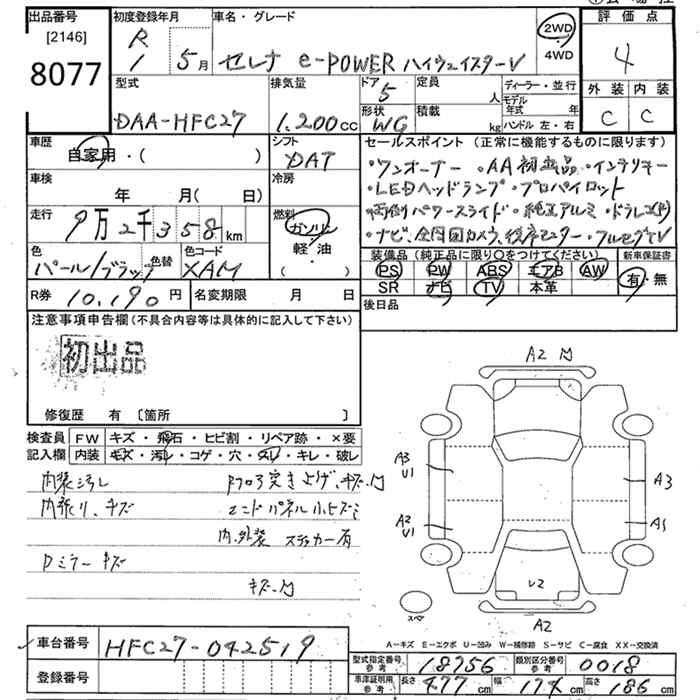 出品番号
[2146]
8077
初度登録年月
R 1 5月
車名・グレード
セレナ e-POWER ハイウェイスターV
2WD
4WD
評価点
4
外装 内装
C C
型式
DAA-HFC27
排気量
1.200cc
ドア
5
形状
WG
定員
人
積載
kg
ディーラー・並行
モデル年式 年
ハンドル 左・右
車歴
自家用・( )
シフト
DAT
車検
年 月( 日)
冷房
走行
9万2千358km
燃料
ガソリン
軽・油
( )
色
パール/ブラック
色替
色コード
XAM
R券 10.190円
名変期限 月 日
セールスポイント(正常に機能するものに限ります)
・ワンオーナー ・AA初出品 ・インテリキー
・LEDヘッドランプ ・プロパイロット
・両側パワースライド ・純正アルミ ・ドラレコ(F)
・ナビ、全周囲カメラ、後席モニター ・フルセグTV
装備品(純正品に限り○をつけてください)
PS PW ABS エアB AW
SR ナビ TV 本革
新車保証書
有・無
後日品
注意事項申告欄(不具合内容等は具体的に記入して下さい)
初出品
修復歴 有 〔箇所 〕
検査員記入欄
FW キズ・飛石・ヒビ割・リペア跡・×要
内装 キズ・汚レ・コゲ・穴・スレ・キレ・破レ
内装汚レ
内張り、キズ
Dミラーキズ
Fフロア突き上げ、キズ、凹
エンドパネル小ヒズミ
内、外装 ステッカー有
キズ、凹
A2 凹
A3
U1
A2
U1
A3
A1
U2
A2
スペア
A-キズ E-エクボ U-凹み W-補修跡 S-サビ C-腐食 XX-交換済
車台番号
HFC27-042519
登録番号
型式指定番号参考
18756
類別区分番号参考
0018
車庫証明用参考
長さ 477cm 幅 174cm 高さ 186cm